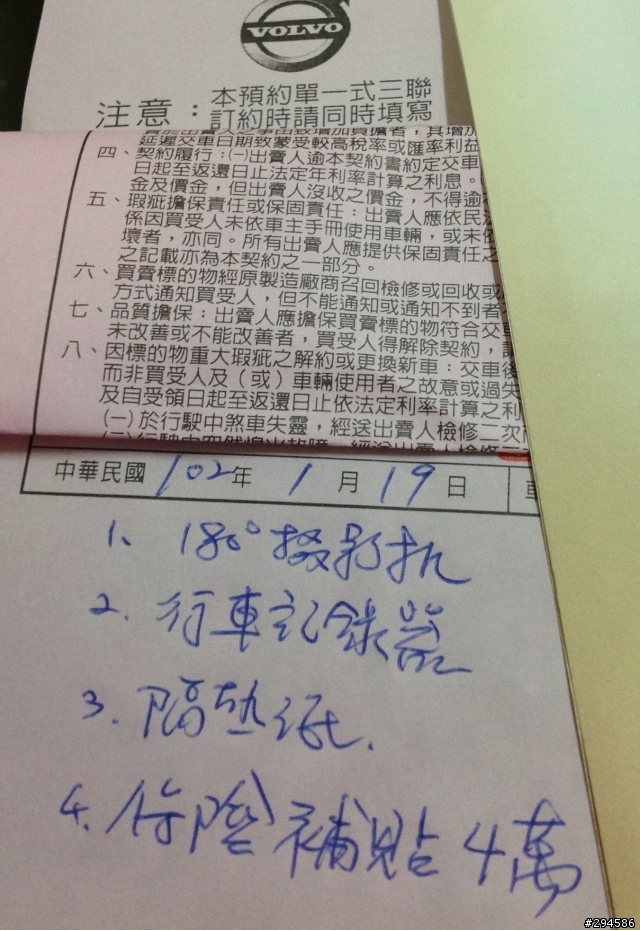 VOLVO
注意：本預約單一式三聯
訂約時請同時填寫
延遲交車日期致蒙受較高稅率或匯率利益
四、契約履行：㈠出賣人逾本契約書約定交車
日起至返還日止法定年利率計算之利息。
金及價金，但出賣人沒收之價金，不得逾
五、瑕疵擔保責任或保固責任：出賣人應依民
係因買受人未依車主手冊使用車輛，或未依
壞者，亦同。所有出賣人應提供保固責任之
之記載亦為本契約之一部分。
六、買賣標的物經原製造廠商召回檢修或回收或
方式通知買受人，但不能通知或通知不到者
七、品質擔保：出賣人應擔保買賣標的物符合交
未改善或不能改善者，買受人得解除契約，
八、因標的物重大瑕疵之解約或更換新車：交車後
而非買受人及（或）車輛使用者之故意或過失
及自受領日起至返還日止依法定利率計算之利
(一)於行駛中煞車失靈，經送出賣人檢修二次
中華民國 102 年 1 月 19 日
1. 180° 攝影机
2. 行車記錄器
3. 隔熱紙.
4. 保險補貼4萬
#294586